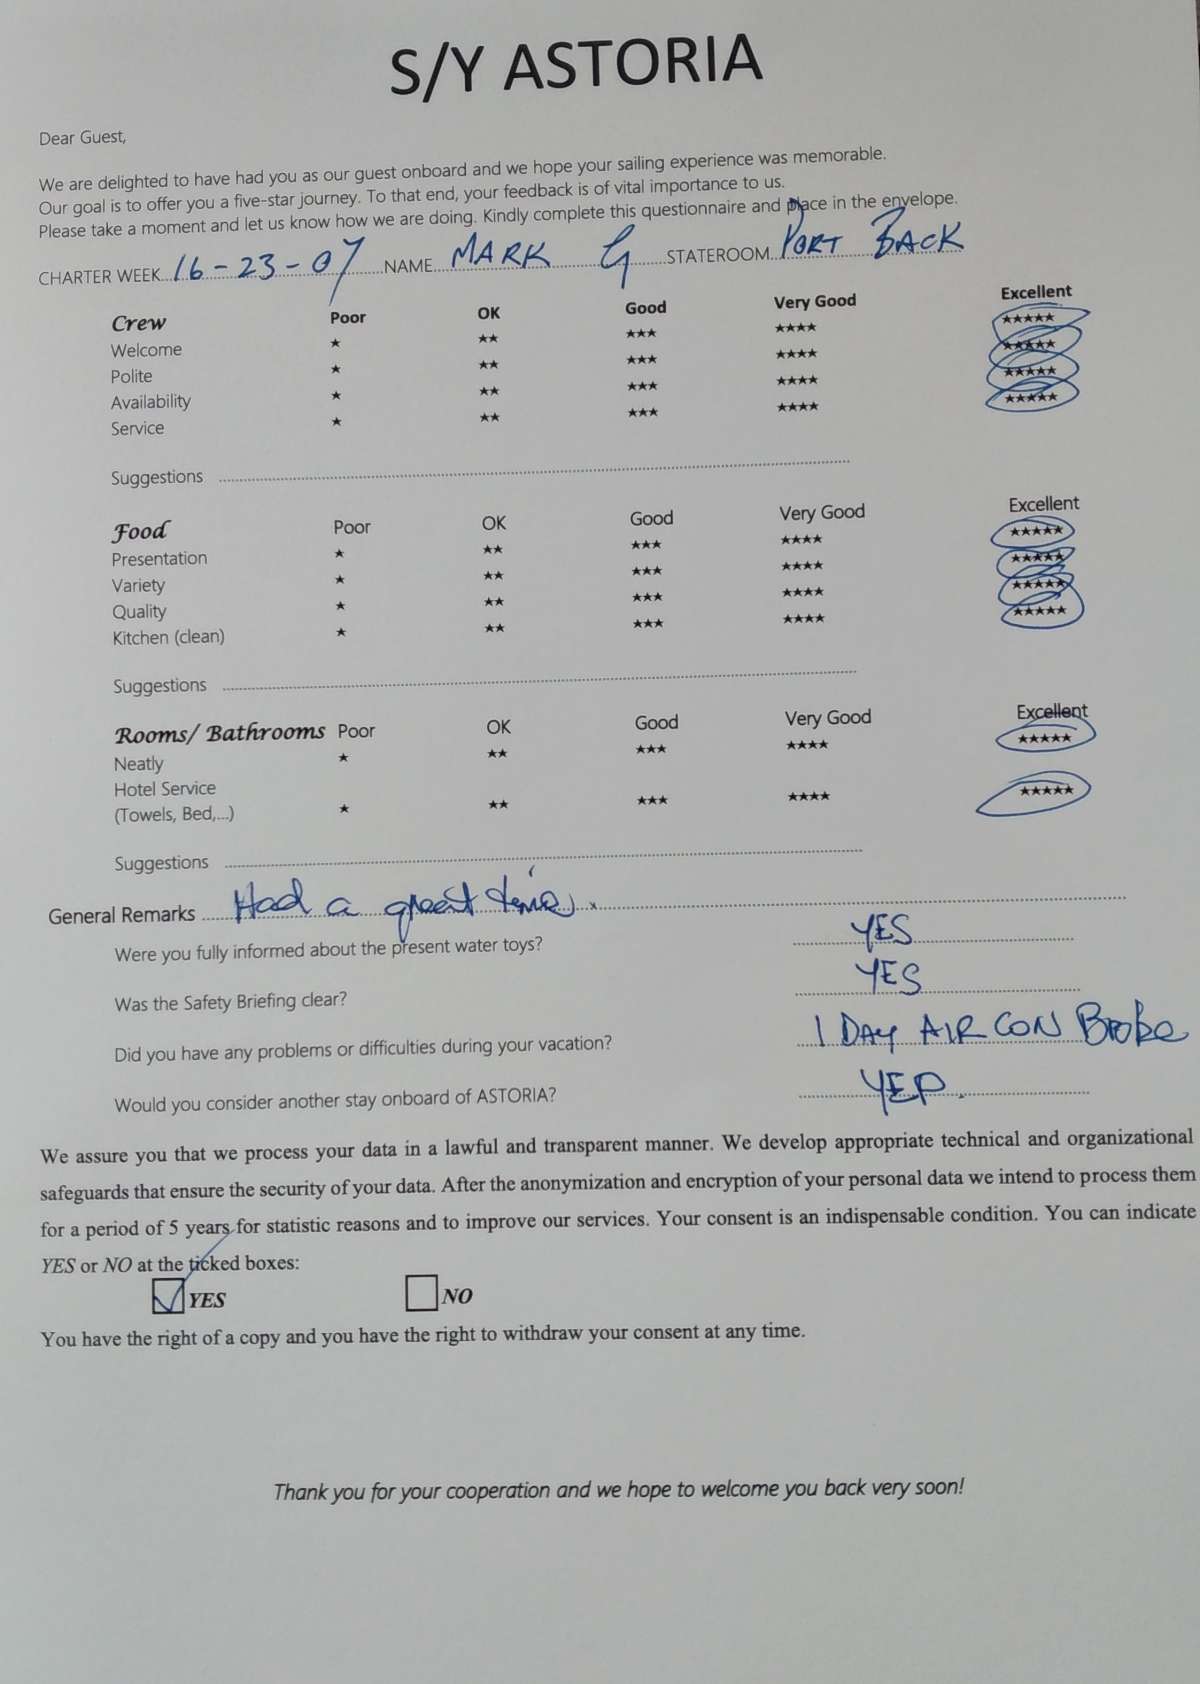 S/Y ASTORIA
Dear Guest,
We are delighted to have had you as our guest onboard and we hope your sailing experience was memorable.
Our goal is to offer you a five-star journey. To that end, your feedback is of vital importance to us.
Please take a moment and let us know how we are doing. Kindly complete this questionnaire and place in the envelope.
CHARTER WEEK 16-23-07 NAME MARK G STATEROOM PORT BACK
Crew Poor OK Good Very Good Excellent
Welcome ★ ★★ ★★★ ★★★★ ★★★★★
Polite ★ ★★ ★★★ ★★★★ ★★★★★
Availability ★ ★★ ★★★ ★★★★ ★★★★★
Service ★ ★★ ★★★ ★★★★ ★★★★★
Suggestions
Food Poor OK Good Very Good Excellent
Presentation ★ ★★ ★★★ ★★★★ ★★★★★
Variety ★ ★★ ★★★ ★★★★ ★★★★★
Quality ★ ★★ ★★★ ★★★★ ★★★★★
Kitchen (clean) ★ ★★ ★★★ ★★★★ ★★★★★
Suggestions
Rooms/ Bathrooms Poor OK Good Very Good Excellent
Neatly ★ ★★ ★★★ ★★★★ ★★★★★
Hotel Service
(Towels, Bed,...) ★ ★★ ★★★ ★★★★ ★★★★★
Suggestions
General Remarks Had a great time.
Were you fully informed about the present water toys? YES
Was the Safety Briefing clear? YES
Did you have any problems or difficulties during your vacation? 1 DAY AIR CON Broke
Would you consider another stay onboard of ASTORIA? YEP.
We assure you that we process your data in a lawful and transparent manner. We develop appropriate technical and organizational
safeguards that ensure the security of your data. After the anonymization and encryption of your personal data we intend to process them
for a period of 5 years for statistic reasons and to improve our services. Your consent is an indispensable condition. You can indicate
YES or NO at the ticked boxes:
YES NO
You have the right of a copy and you have the right to withdraw your consent at any time.
Thank you for your cooperation and we hope to welcome you back very soon!